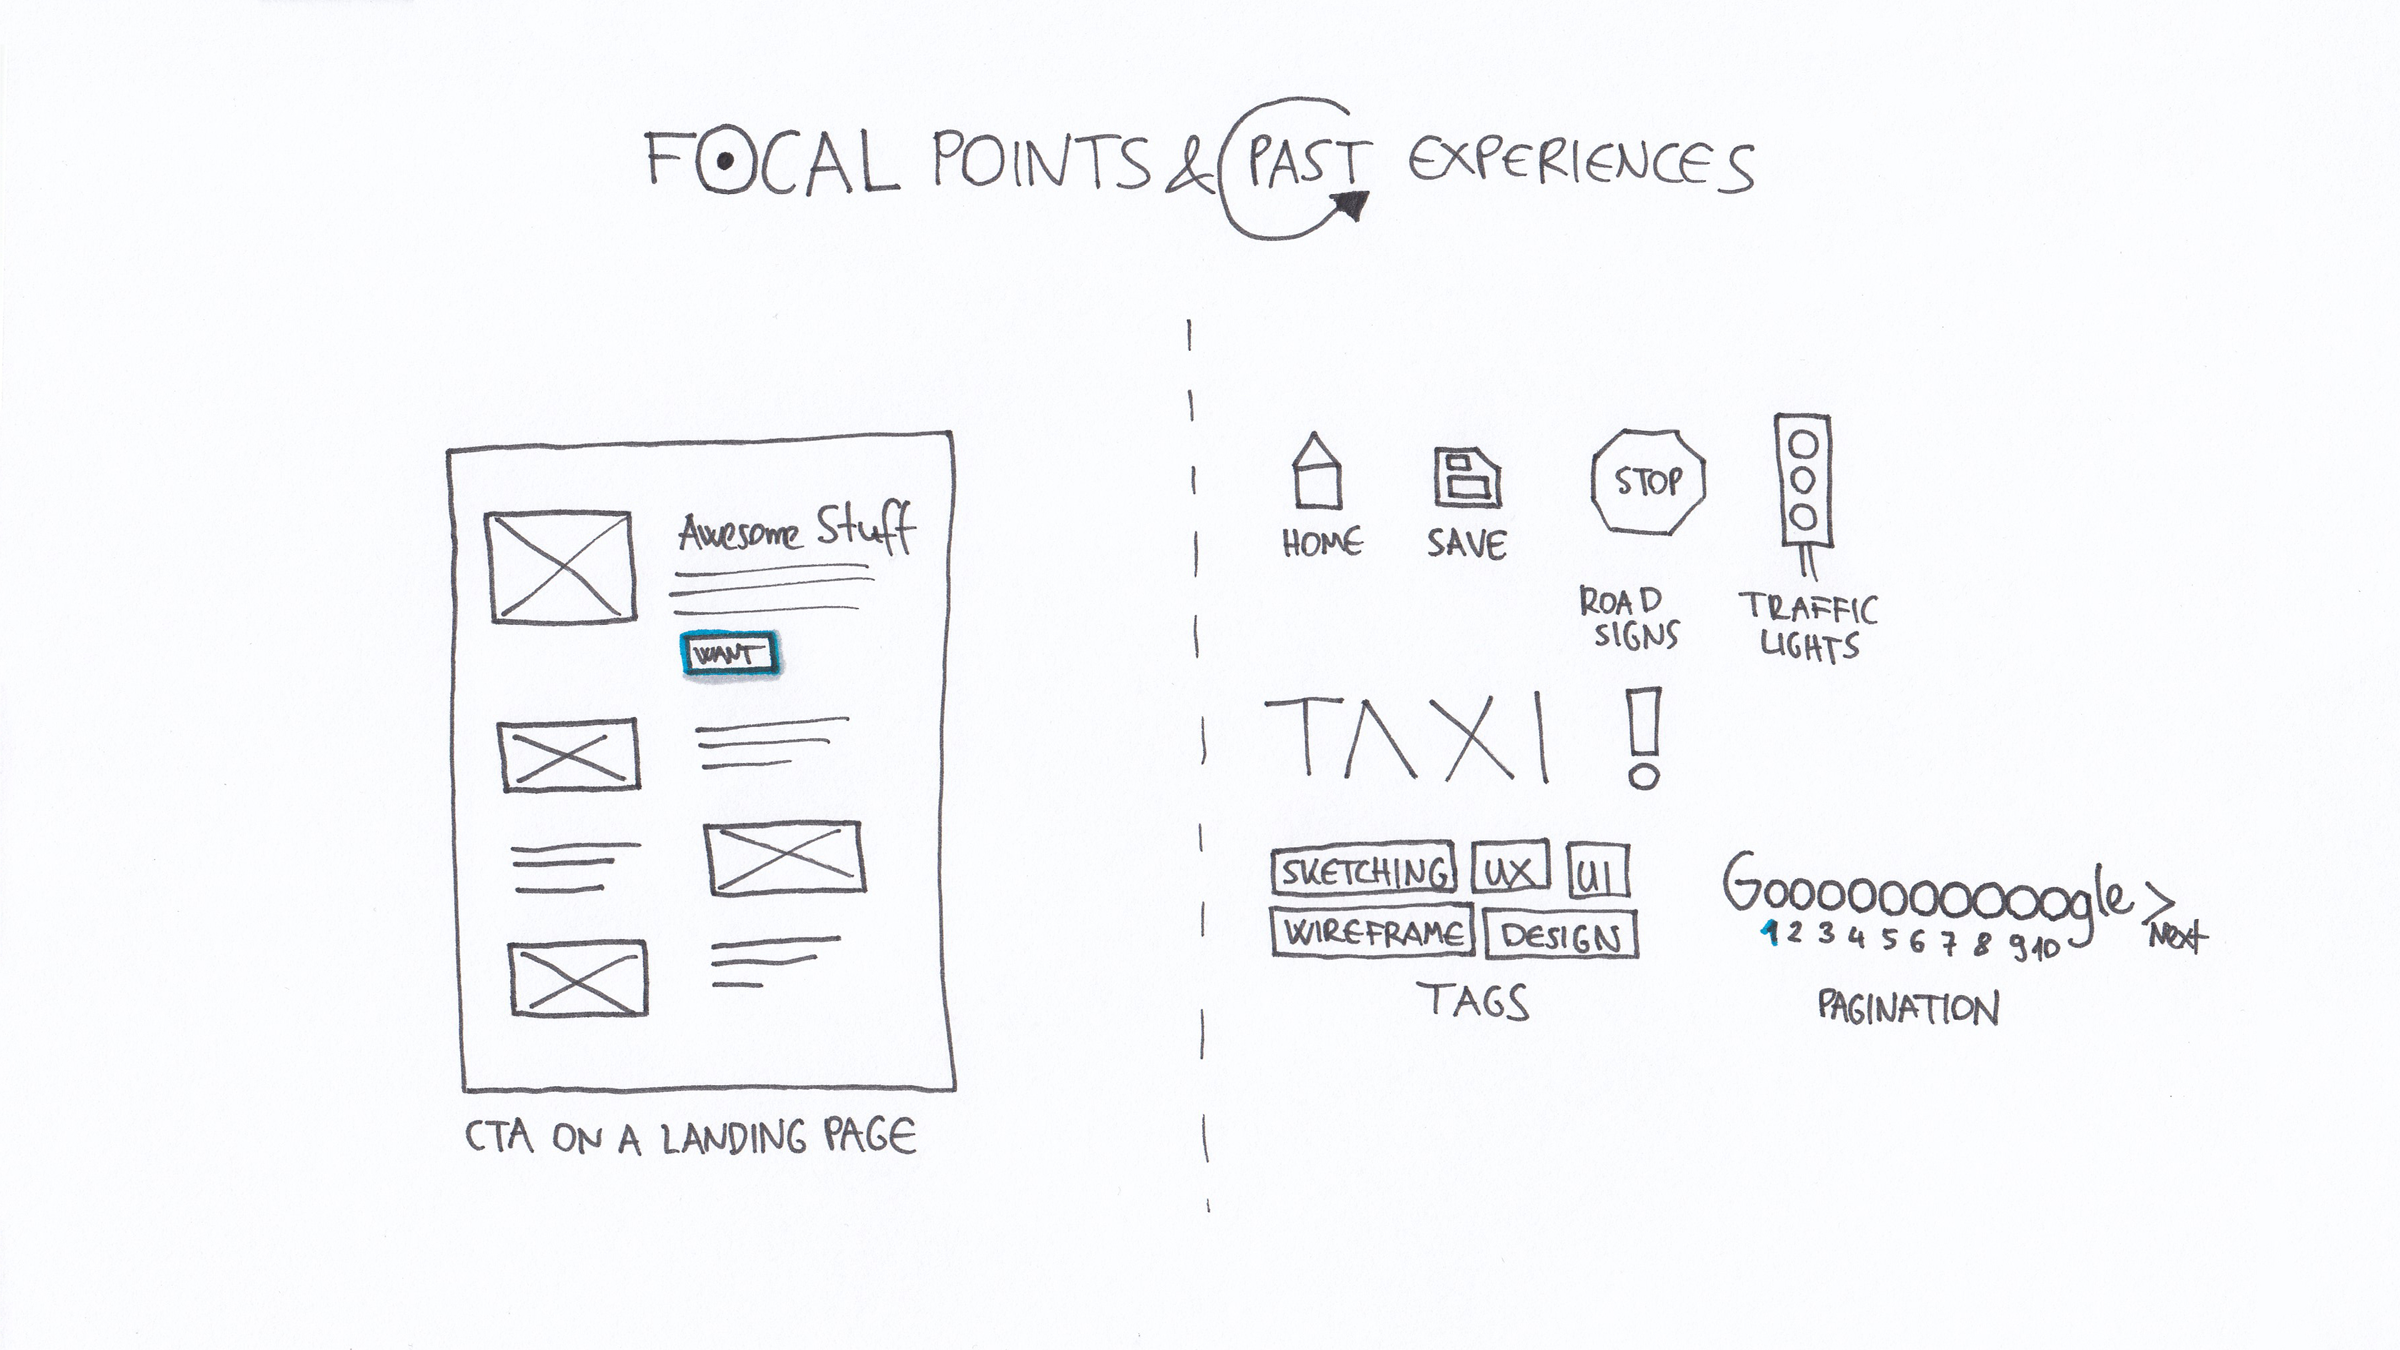 FOCAL POINTS & PAST EXPERIENCES
Awesome Stuff
WANT
CTA ON A LANDING PAGE
HOME
SAVE
STOP
ROAD
SIGNS
TRAFFIC
LIGHTS
TAXI !
SKETCHING UX UI
WIREFRAME DESIGN
TAGS
Goooooooooogle >
1 2 3 4 5 6 7 8 9 10 Next
PAGINATION